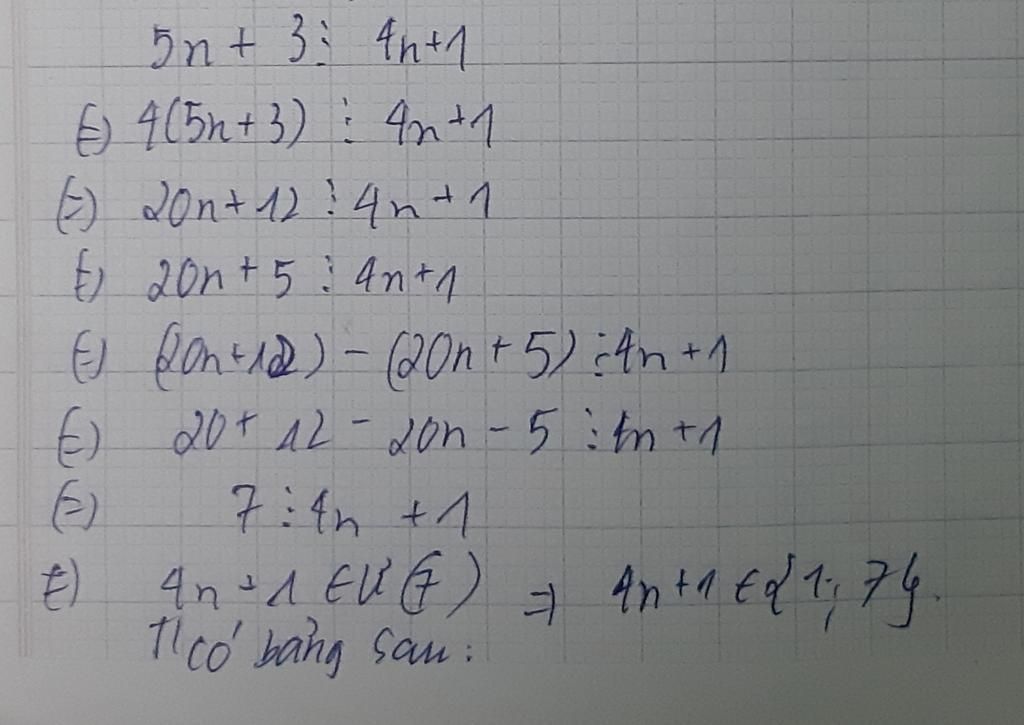 5n + 3 ⋮ 4n+1
(=) 4(5n+3) ⋮ 4n+1
(=) 20n+12 ⋮ 4n+1
(=) 20n+5 ⋮ 4n+1
(=) (20n+12) - (20n+5) ⋮ 4n+1
(=) 20+12-20n-5 ⋮ 4n+1
(=) 7 ⋮ 4n +1
(=) 4n+1 ∈ Ư(7) => 4n+1 ∈ {1; 7}.
Tl có bảng sau: